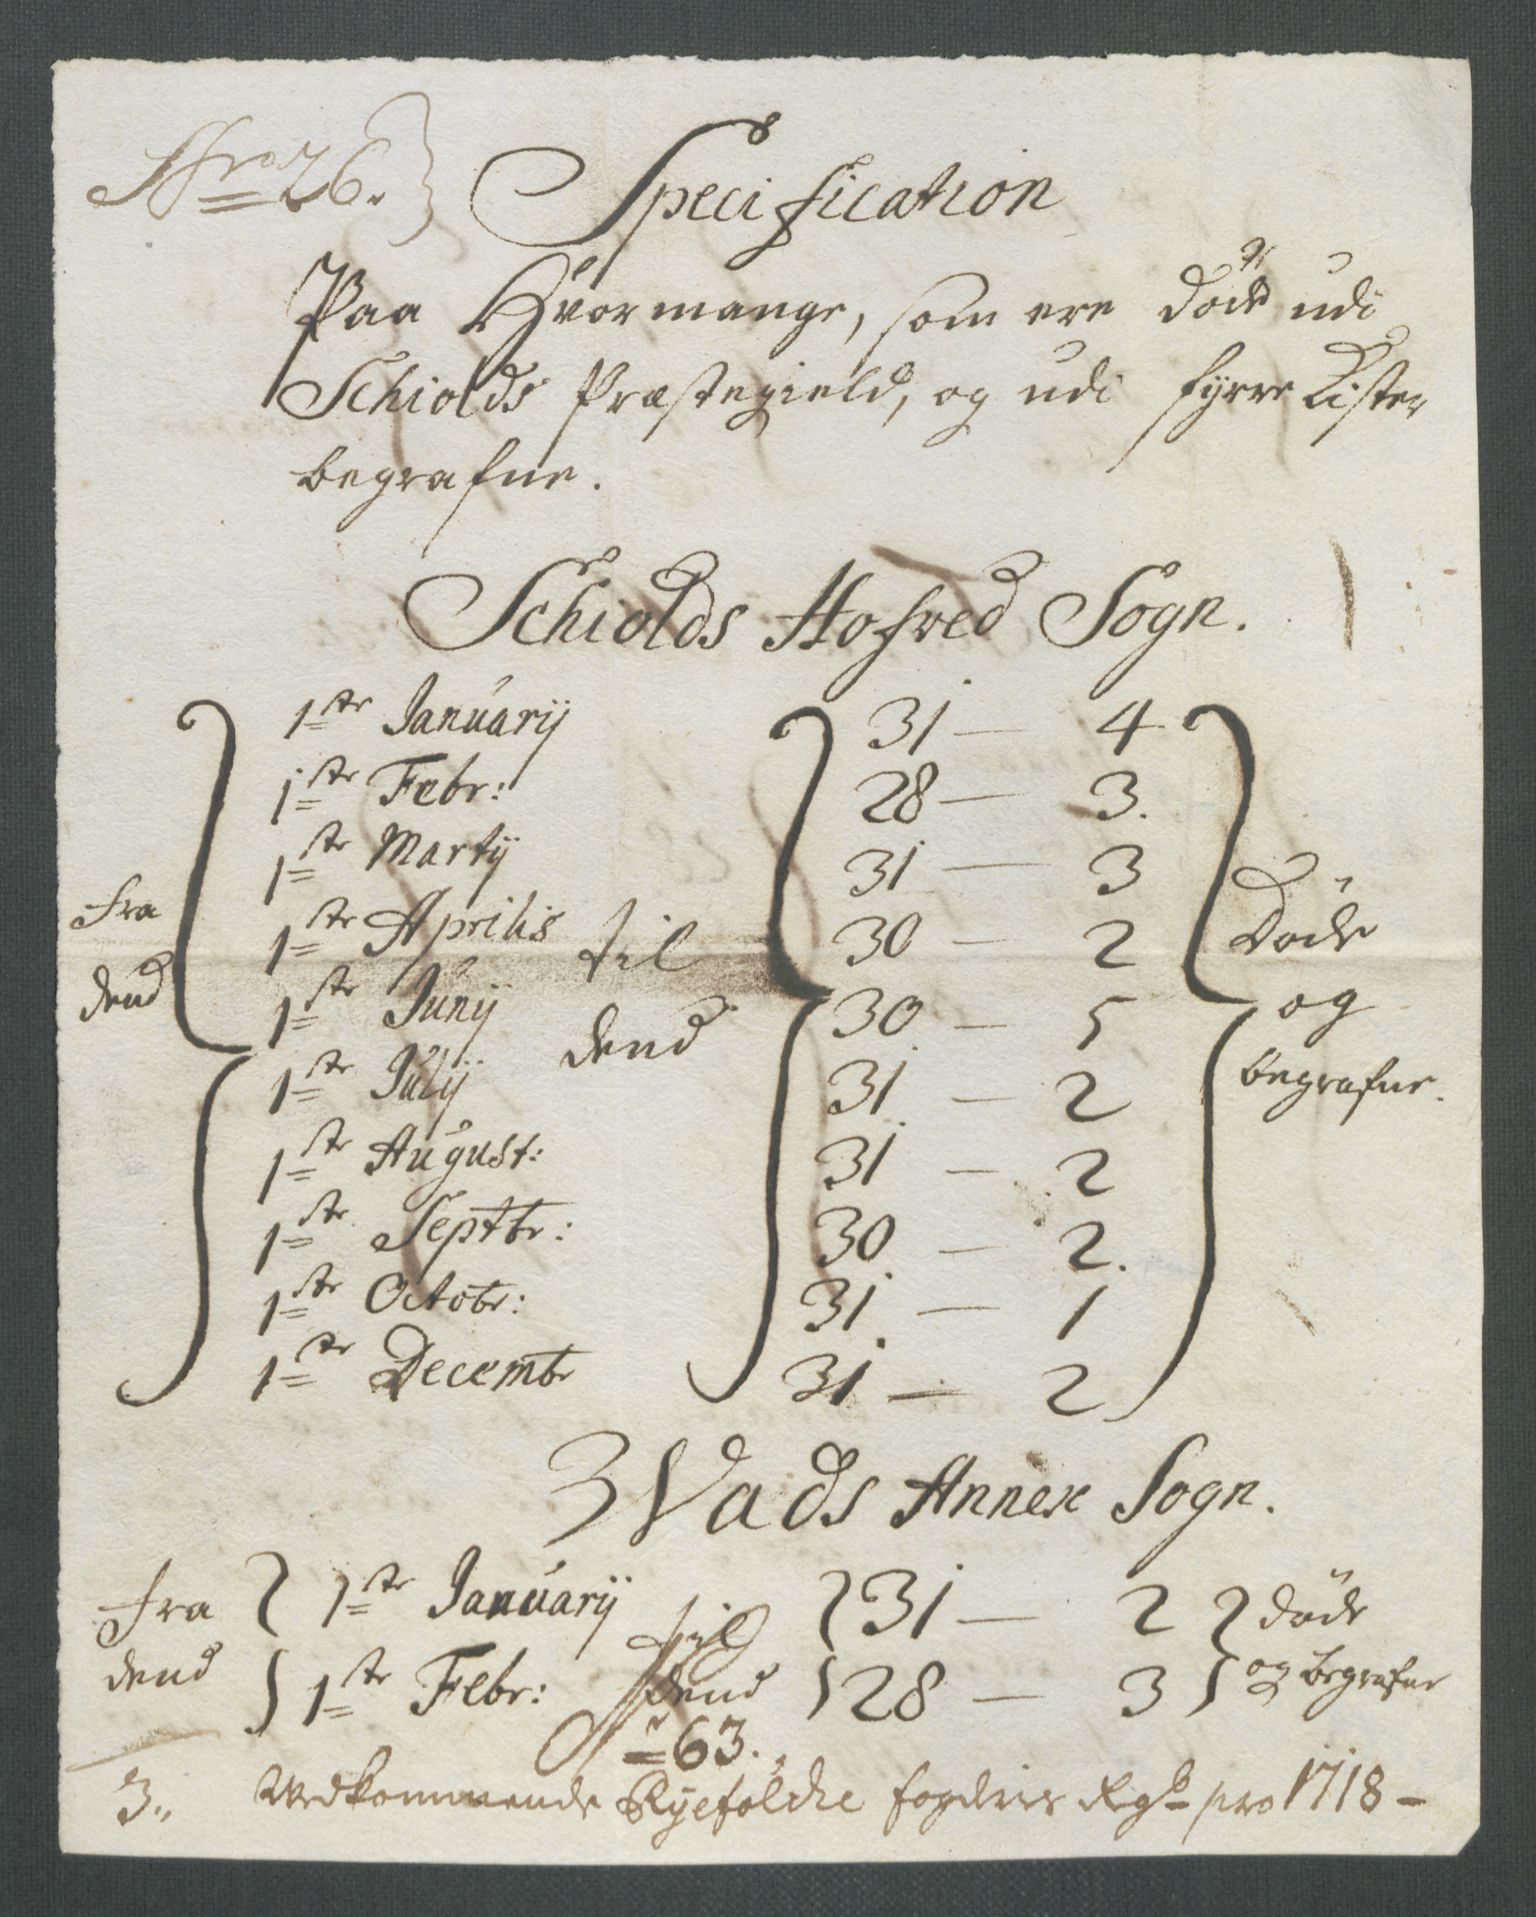 Nro 26.
Specification
Paa Hvormange, som ere döde udi
Schiolds Præstegield, og udi fyrre Kister
begrafne.
Schiolds Hofved Sogn.
fra dend
1ste Januarij 31 — 4
1ste Febr: 28 — 3.
1ste Martij 31 — 3
1ste Aprilis til 30 — 2
1ste Junij dend 30 — 5
1ste Julij 31 — 2
1ste August: 31 — 2
1ste Septbr: 30 — 2.
1ste Octobr: 31. — 1
1ste Decembr 31 — 2
Döde
og
begrafne.
Wads Annex Sogn.
fra 1ste Januarij til 31 — 2 döde
dend 1ste Febr: dend 28 — 3 og begrafne
No 63.
3. Vedkommende Ryefölche fogderies Regsk pro 1718 -